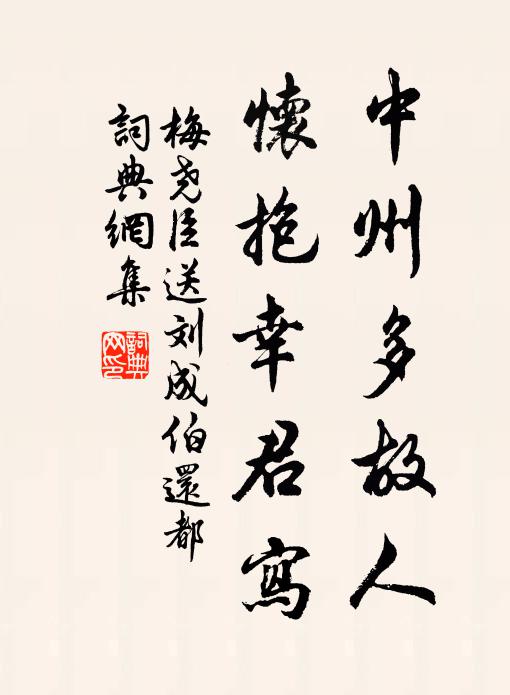 中州多故人
懷抱幸君寫
梅尧臣送刘成伯還都
詞典網集
詞典
网印